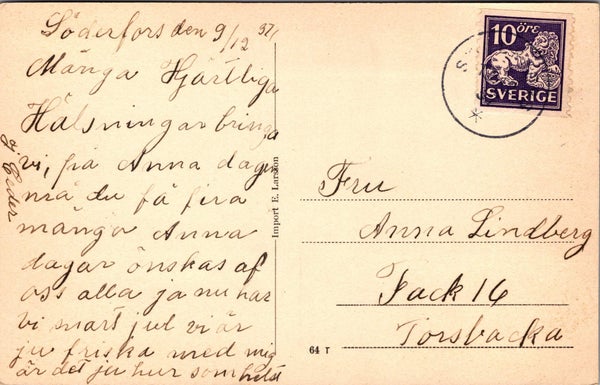 Söderfors den 9/12 32
Många Hjärtliga
Hälsningar bringa
vi, på Anna dagen
må du få fira
många Anna
dagar önskas af
oss alla ja nu har
vi snart jul vi är
ju friska med mig
är det ju hur somhelst
Eder
Import E. Larsson
64 T
10 ÖRE
SVERIGE
Fru
Anna Lindberg
Fack 16
Torsbacka